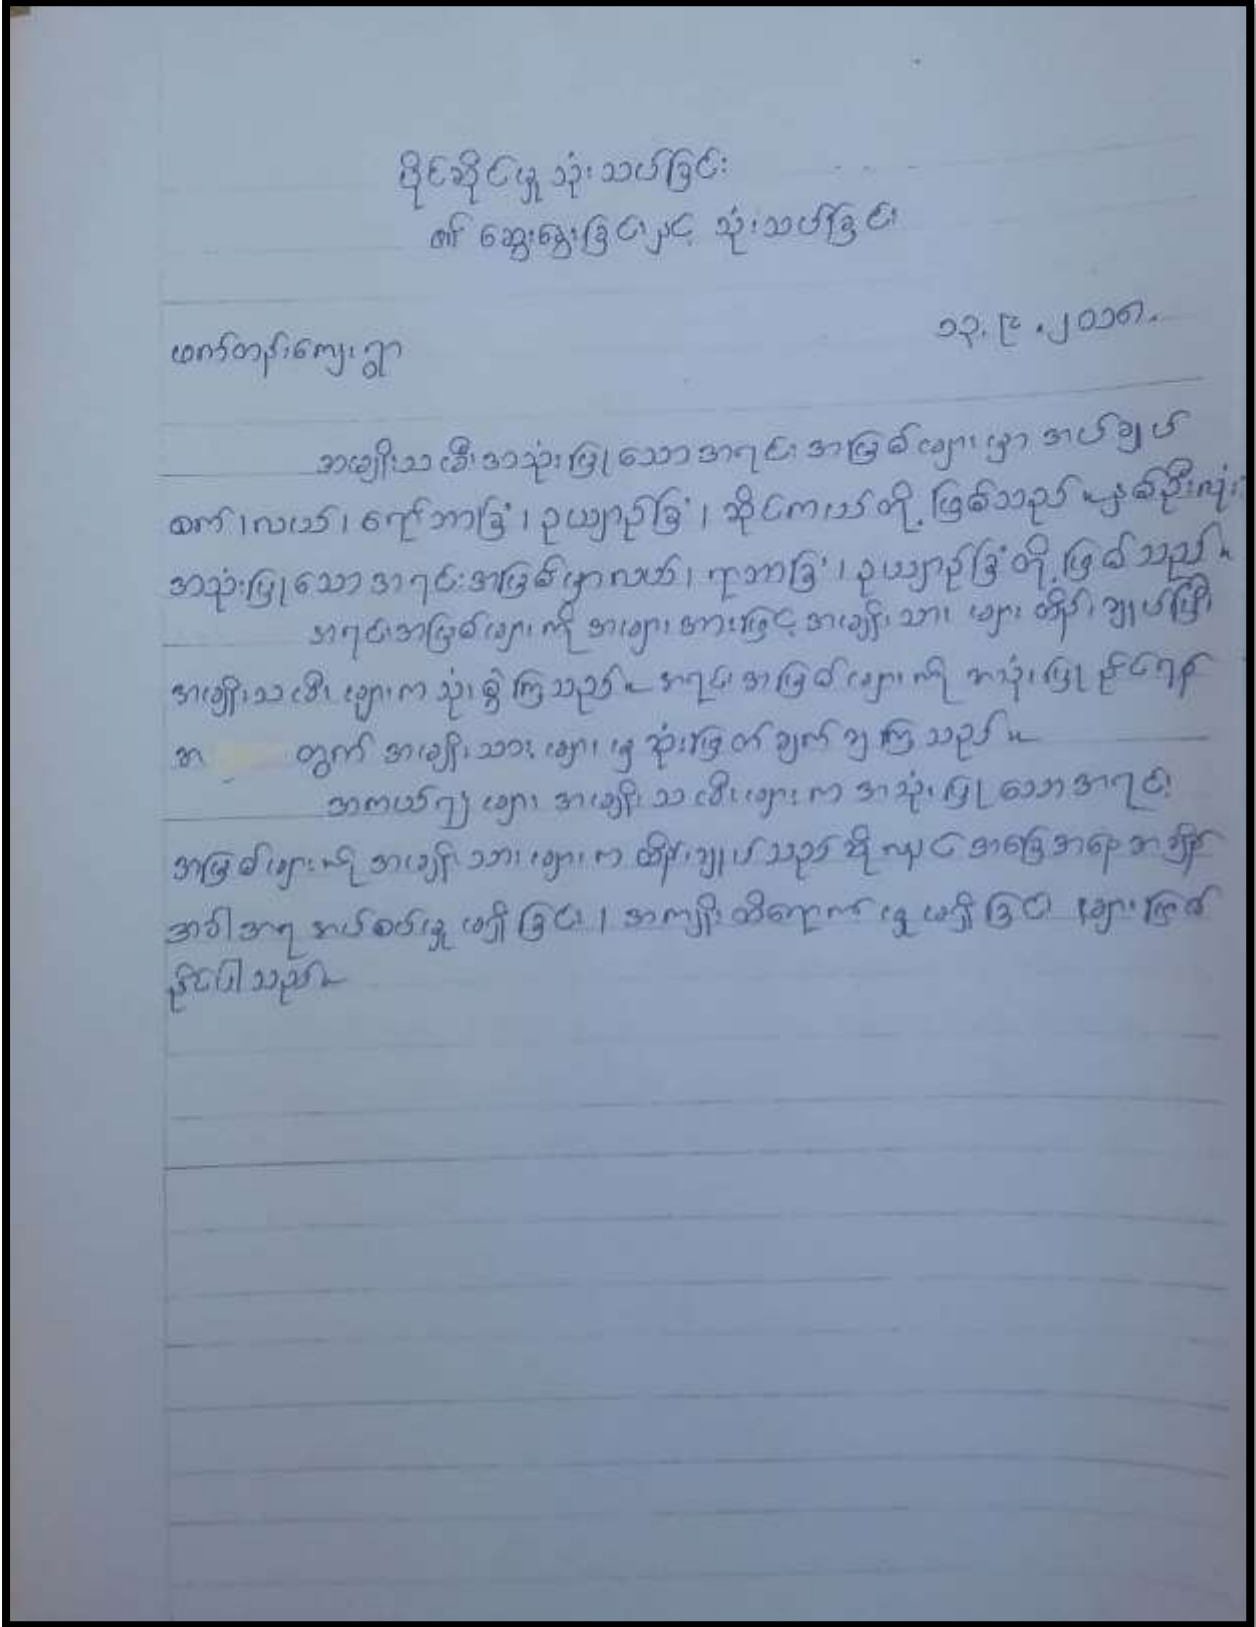 ပိုင်ဆိုင်မှု သုံးသပ်ခြင်း
၏ ဆွေးနွေးခြင်းနှင့် သုံးသပ်ခြင်း
ဖက်တန်းကျေးရွာ ၁၃.၉.၂၀၁၈.
အမျိုးသမီးအသုံးပြုသောအရင်းအမြစ်များမှာ အယ်ချယ်
စက်၊လယ်၊ ရော်ဘာခြံ၊ ဥယျာဉ်ခြံ၊ ဆိုင်ကယ်တို့ ဖြစ်သည်။နှစ်ဦးလုံး
အသုံးပြုသောအရင်းအမြစ်မှာလယ်၊ ရာဘာခြံ၊ ဥယျာဉ်ခြံတို့ ဖြစ်သည်။
အရင်းအမြစ်များကို အများအားဖြင့် အမျိုးသား များ ထိန်းချုပ်ပြီး
အမျိုးသမီးများက သုံးစွဲကြသည်။ အရင်းအမြစ်များကို အသုံးပြုနိုင်ရန်
အ တွက် အမျိုးသားများမှ ဆုံးဖြတ်ချက်ချကြသည်။
အကယ်၍များ အမျိုးသမီးများက အသုံးပြုသောအရင်း
အမြစ်များကို အမျိုးသားများက ထိန်းချုပ်သည်ဆိုလျှင် အခြေအနေအချိန်
အခါအရ အဆင်မပြေမှု မရှိခြင်း၊ အကျိုးထိရောက်မှု မရှိခြင်း များဖြစ်
နိုင်ပါသည်။